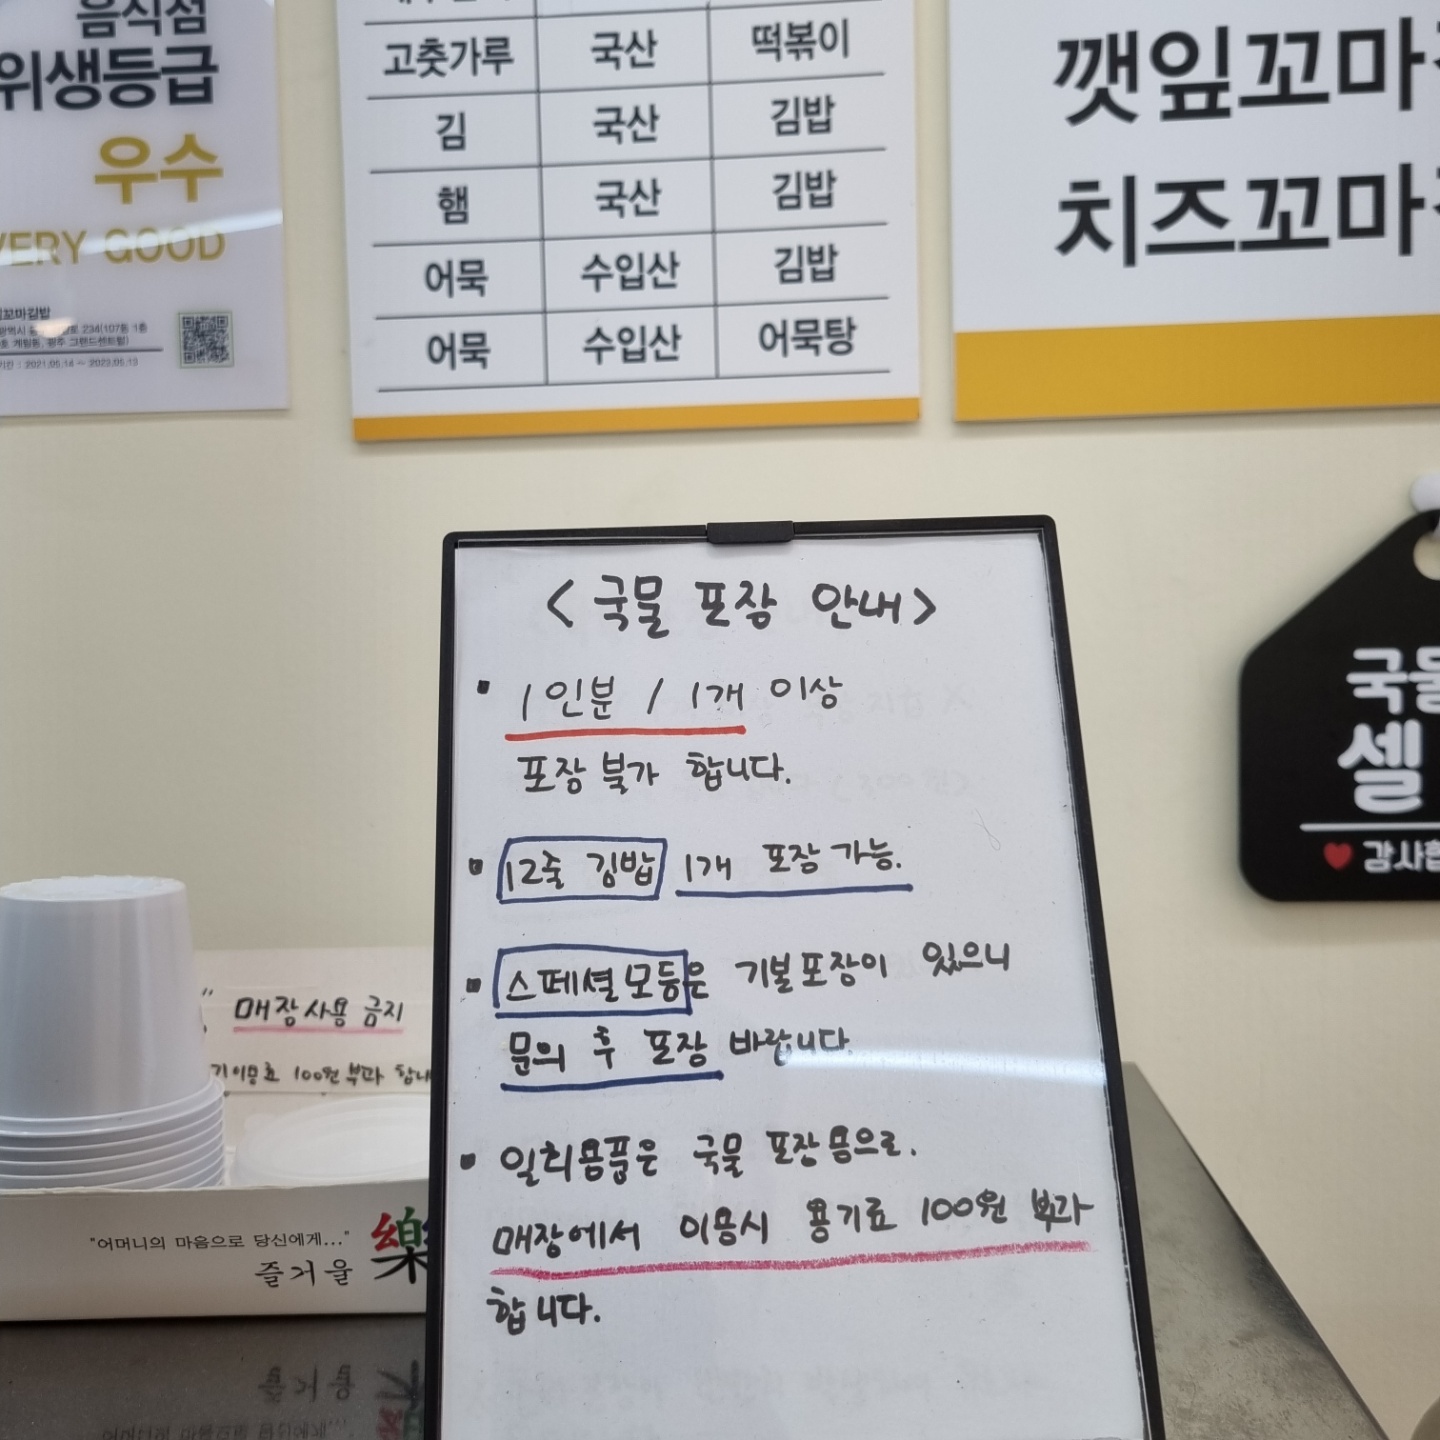 음식점
위생등급
우수
VERY GOOD
꼬마김밥
234(107동 1층
2021.05.14 ~ 2023.05.13
고춧가루 국산 떡볶이
김 국산 김밥
햄 국산 김밥
어묵 수입산 김밥
어묵 수입산 어묵탕
깻잎꼬마
치즈꼬마
국물
셀
감사합
<국물 포장 안내>
1인분 / 1개 이상
포장 불가 합니다.
12줄 김밥 1개 포장 가능.
스페셜모듬은 기본포장이 있으니
문의 후 포장 바랍니다.
일회용품은 국물 포장용으로.
매장에서 이용시 용기료 100원 부과
합니다.
매장사용 금지
100원 부과 합니
"어머니의 마음으로 당신에게..."
즐거울 樂